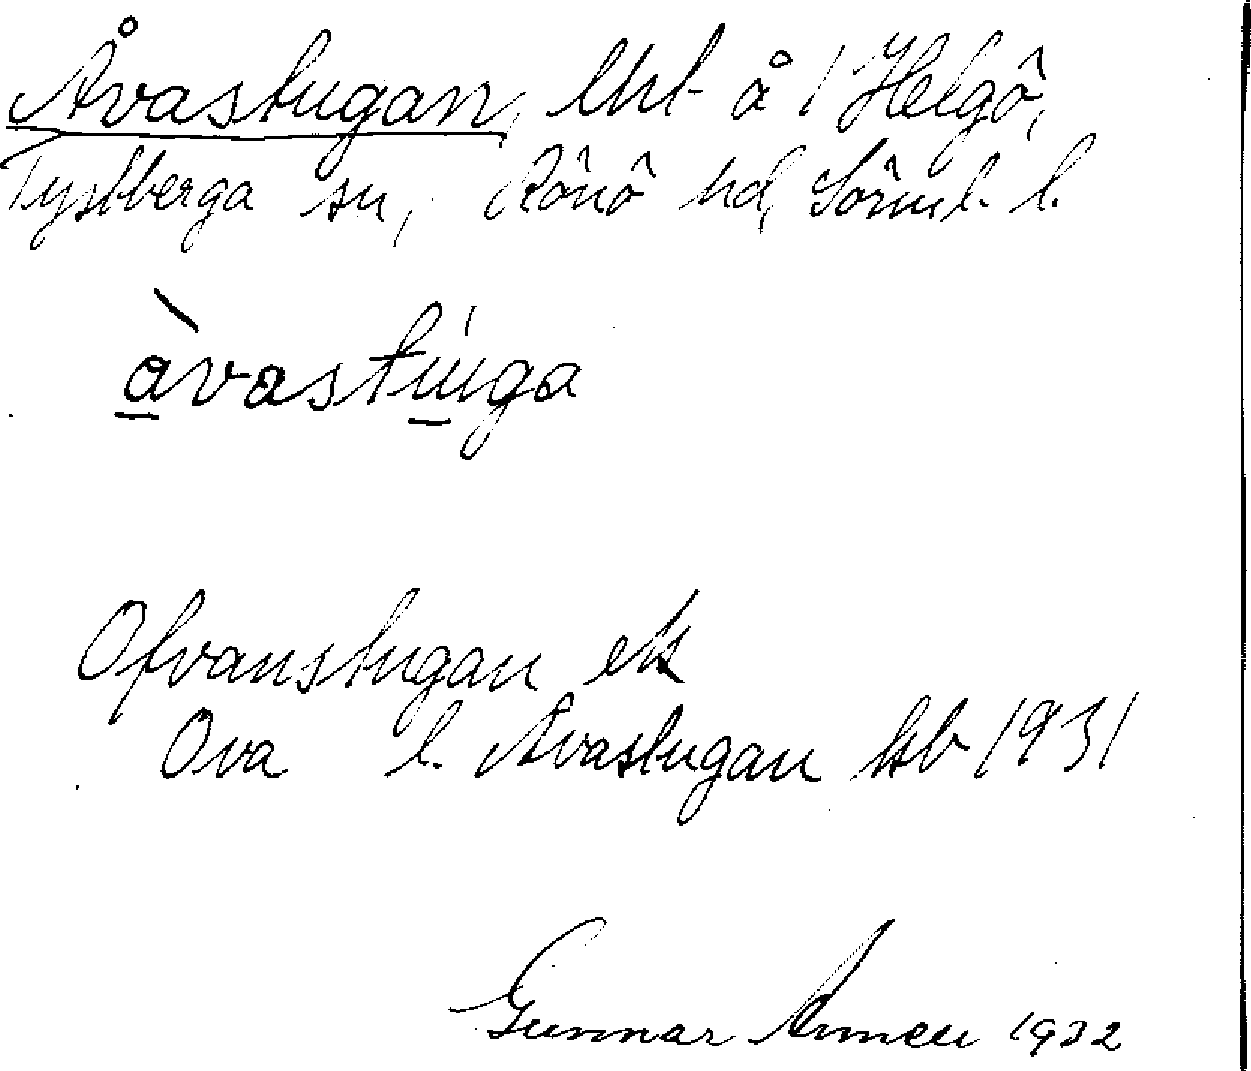 Åvastugan, lht å 1 Helgö,
Tystberga sn, Rönö hd, Sörml. l.
àvastúga
Ofvanstugan ek
Ova l. Åvastugan hb 1931
Gunnar 1932